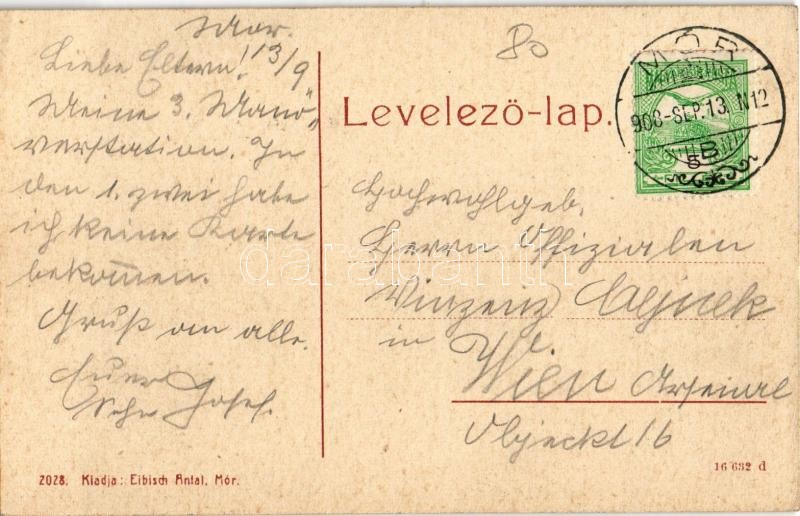 Mór.
13/9
Liebe Eltern!
Meine 3. Manö„
verstation. In
den 1. zwei habe
ich keine Karte
bekommen.
Gruß an alle.
Euer
Sohn Josef.
2028. Kiadja: Eibisch Antal, Mór.
80
Levelező-lap.
MÓR
908-SEP.13. N12
B
Hochwohlgeb.
Herrn Offizialen
Vinzenz
in
Wien Arsenal
Objeckt 16
16 632 d
darabanth